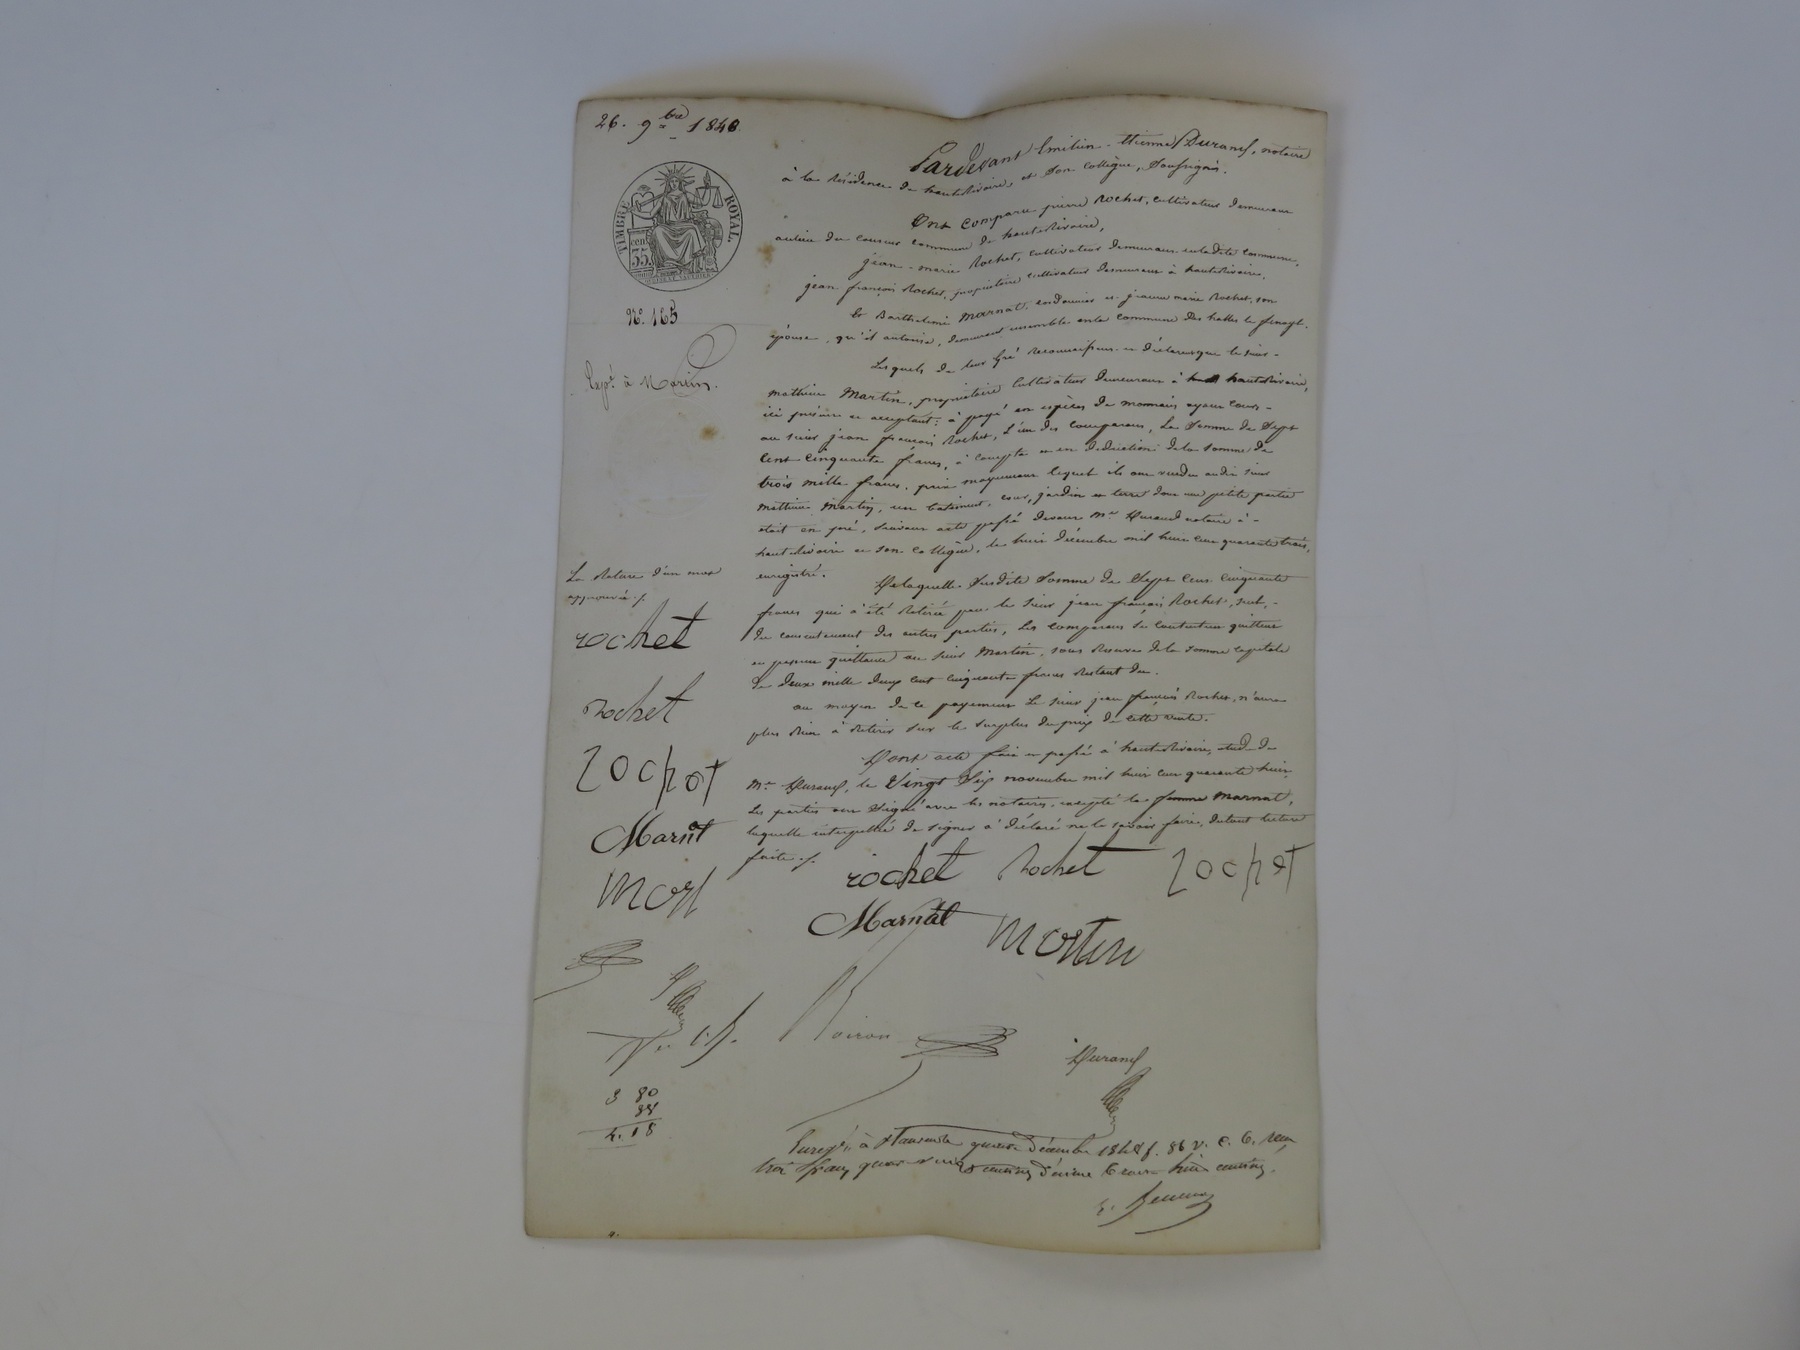 26. 9bre 1848
TIMBRE ROYAL.
cen
35.
No. 165
Expé. à Martin.
Pardevant Emilien-Etienne Durand, notaire
à la Résidence de hauterivoire, et son collègue, soussignés.
Ont comparu pierre Rochet, cultivateur demeurant
au lieu du commune de hauterivoire,
jean-marie Rochet, cultivateur demeurant en ladite commune,
jean françois Rochet, propriétaire cultivateur demeurant à hauterivoire,
Et Barthelemi Marnat, et marie Rochet, son
épouse, qu'il autorise, demeurant ensemble en la commune des halles le fenoyl.
Lesquels de leur gré reconnaissent et déclarent que le sieur
mathieu Martin, propriétaire cultivateur demeurant à hauterivoire,
ici présent et acceptant; à payé en espèces de monnaie ayant cours
au sieur jean françois Rochet, l'un des comparans, la somme de sept
cent cinquante francs, à compte et en déduction de la somme de
trois mille francs, prix moyennant lequel ils ont vendu audit sieur
mathieu Martin, un batiment, cour, jardin et terre dont une petite partie
était en pré, suivant acte passé devant Me Durand notaire à
hauterivoire et son collègue, le huit décembre mil huit cent quarante trois,
enregistré.
De laquelle susdite somme de sept cent cinquante
francs qui à été retirée par le sieur jean françois Rochet, seul,
du consentement des autres parties, les comparans se contentent quittent
en passent quittance au sieur Martin, sous réserve de la somme capitale
de deux mille deux cent cinquante francs restant due.
au moyen de ce payement le sieur jean françois Rochet, n'aura
plus rien à retirer sur le surplus du prix de cette vente.
Dont acte fait et passé à hauterivoire, étude de
Me Durand, le vingt six novembre mil huit cent quarante huit,
les parties ont signé avec les notaires, excepté la femme Marnat,
laquelle interpellée de signer à déclaré ne le savoir faire, dûtant lecture
faite ./.
La Rature d'un mot
approuvée ./.
rochet
Rochet
rochet
Marnat
rochet Rochet rochet
Marnat Martin
Durand
3 80
4.18
Enregé. à décembre 1848 f. 86 v. c. 6. reçu
trois francs quatre vingt centimes décime trente huit centimes.